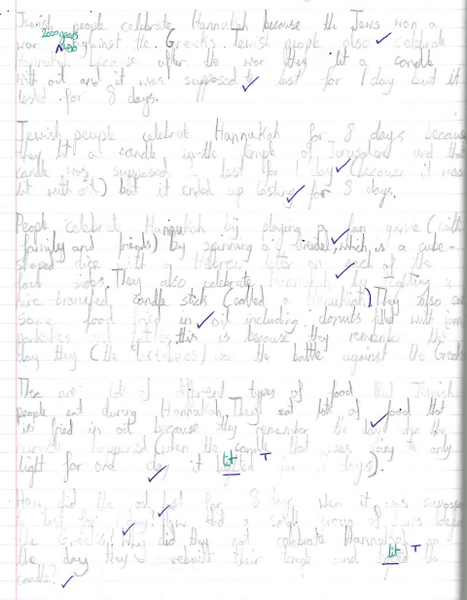 Jewish people celebrate Hannukah because the Jews won a
war 2000 years ago against the Greeks. Jewish people also celebrate
Hannukah because after the war they lit a candle
with oil and it was supposed to last for 1 day but it
lasted for 8 days.
Jewish people celebrate Hannukah for 8 days because
they lit a candle in the temple of Jerusalem and that
candle was supposed to last for 1 day (because it was
lit with oil) but it ended up lasting for 8 days.
People celebrate Hannukah by playing a fun game (with
family and friends) by spinning a dredel, which is a cube-
shaped dice with a letter on each of the
four sides. They also celebrate Hannukah by lighting a
nine-branched candle stick (called a They also eat
some food fried in oil including: donuts filled with jam
pancakes and this is because they remember the
day they (the won the battle against the Greeks
The are lots of different types of food that Jewish
people eat during Hannukah. They eat lots of food that
is fried in oil because they remember the day when the
miracle happened (when the candle that was only to only
light for one day it lit T for 8 days).
How did the oil last for 8 days when it was supposed
to last for 1 day? How did a small group of Jews defeat
the Greeks? Why did they not celebrate Hannukah on
the day they rebuilt their temple and lit T the
candle?